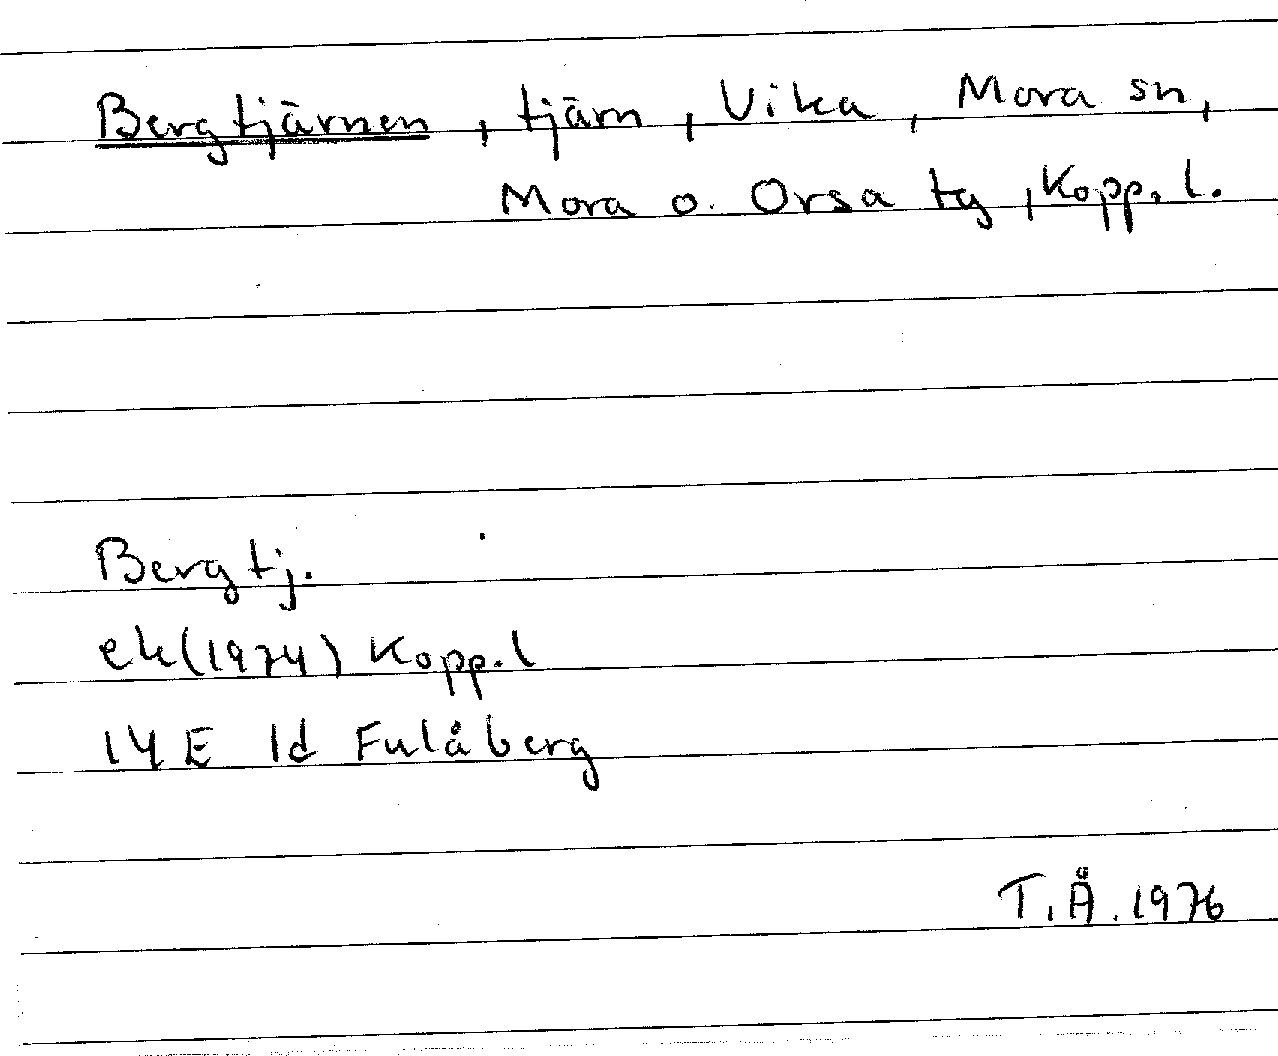 Bergtjärnen, tjärn, Vika, Mora sn,
Mora o. Orsa tg, Kopp. l.
Bergtj.
ek(1974) Kopp. l
14 E 1d Fulåberg
T. Å. 1976